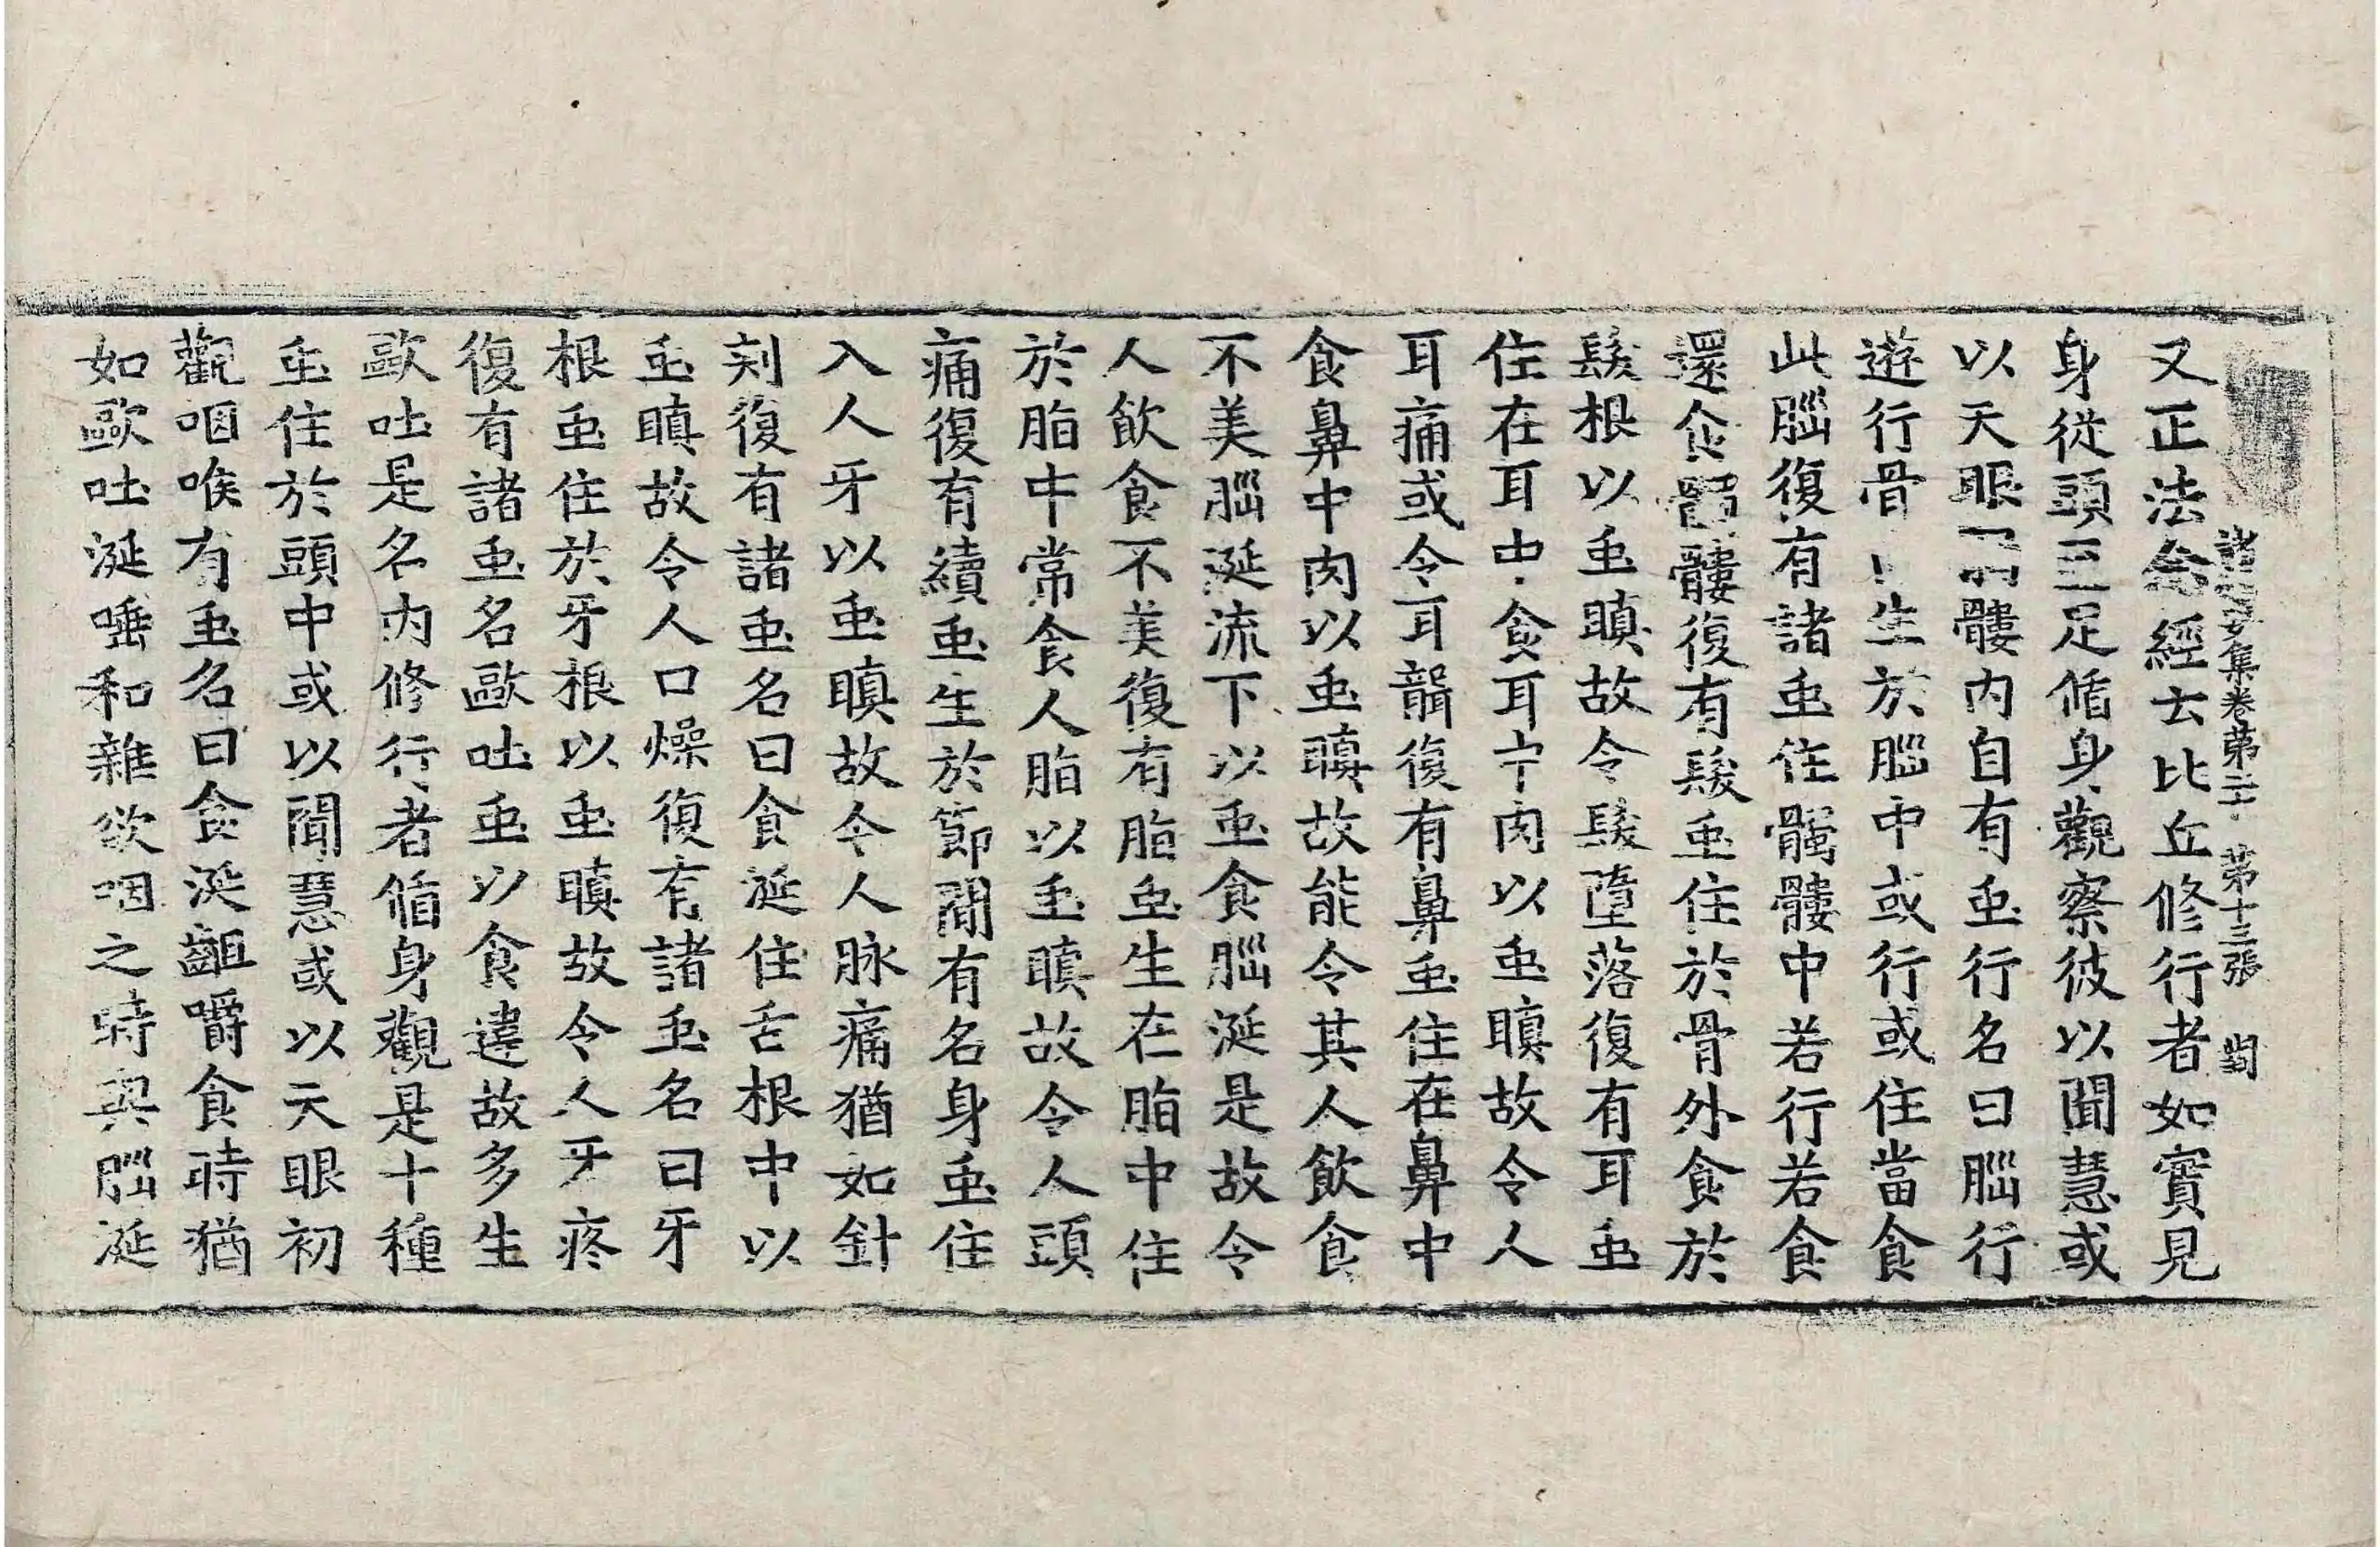 諸經要集卷第二十 第十三張 罰
又正法念經云比丘修行者如實見
身從頭至足循身觀察彼以聞慧或
以天眼髏內自有䖝行名曰腦行
遊行骨生於腦中或行或住當食
此腦復有諸䖝住髑髏中若行若食
還食髑髏復有髮䖝住於骨外食於
髮根以䖝瞋故令髮墮落復有耳䖝
住在耳中食耳中肉以䖝瞋故令人
耳痛或令耳聾復有鼻䖝住在鼻中
食鼻中肉以䖝瞋故能令其人飲食
不美腦涎流下以䖝食腦涎是故令
人飲食不美復有脂䖝生在脂中住
於脂中常食人脂以䖝瞋故令人頭
痛復有續䖝生於節間有名身䖝住
入人牙以䖝瞋故令人脉痛猶如針
刾復有諸䖝名曰食涎住舌根中以
䖝瞋故令人口燥復有諸䖝名曰牙
根䖝住於牙根以䖝瞋故令人牙疼
復有諸䖝名歐吐䖝以食違故多生
歐吐是名內修行者循身觀是十種
䖝住於頭中或以聞慧或以天眼初
觀咽喉有䖝名曰食涎齟嚼食時猶
如歐吐涎唾和雜欲咽之時與腦涎